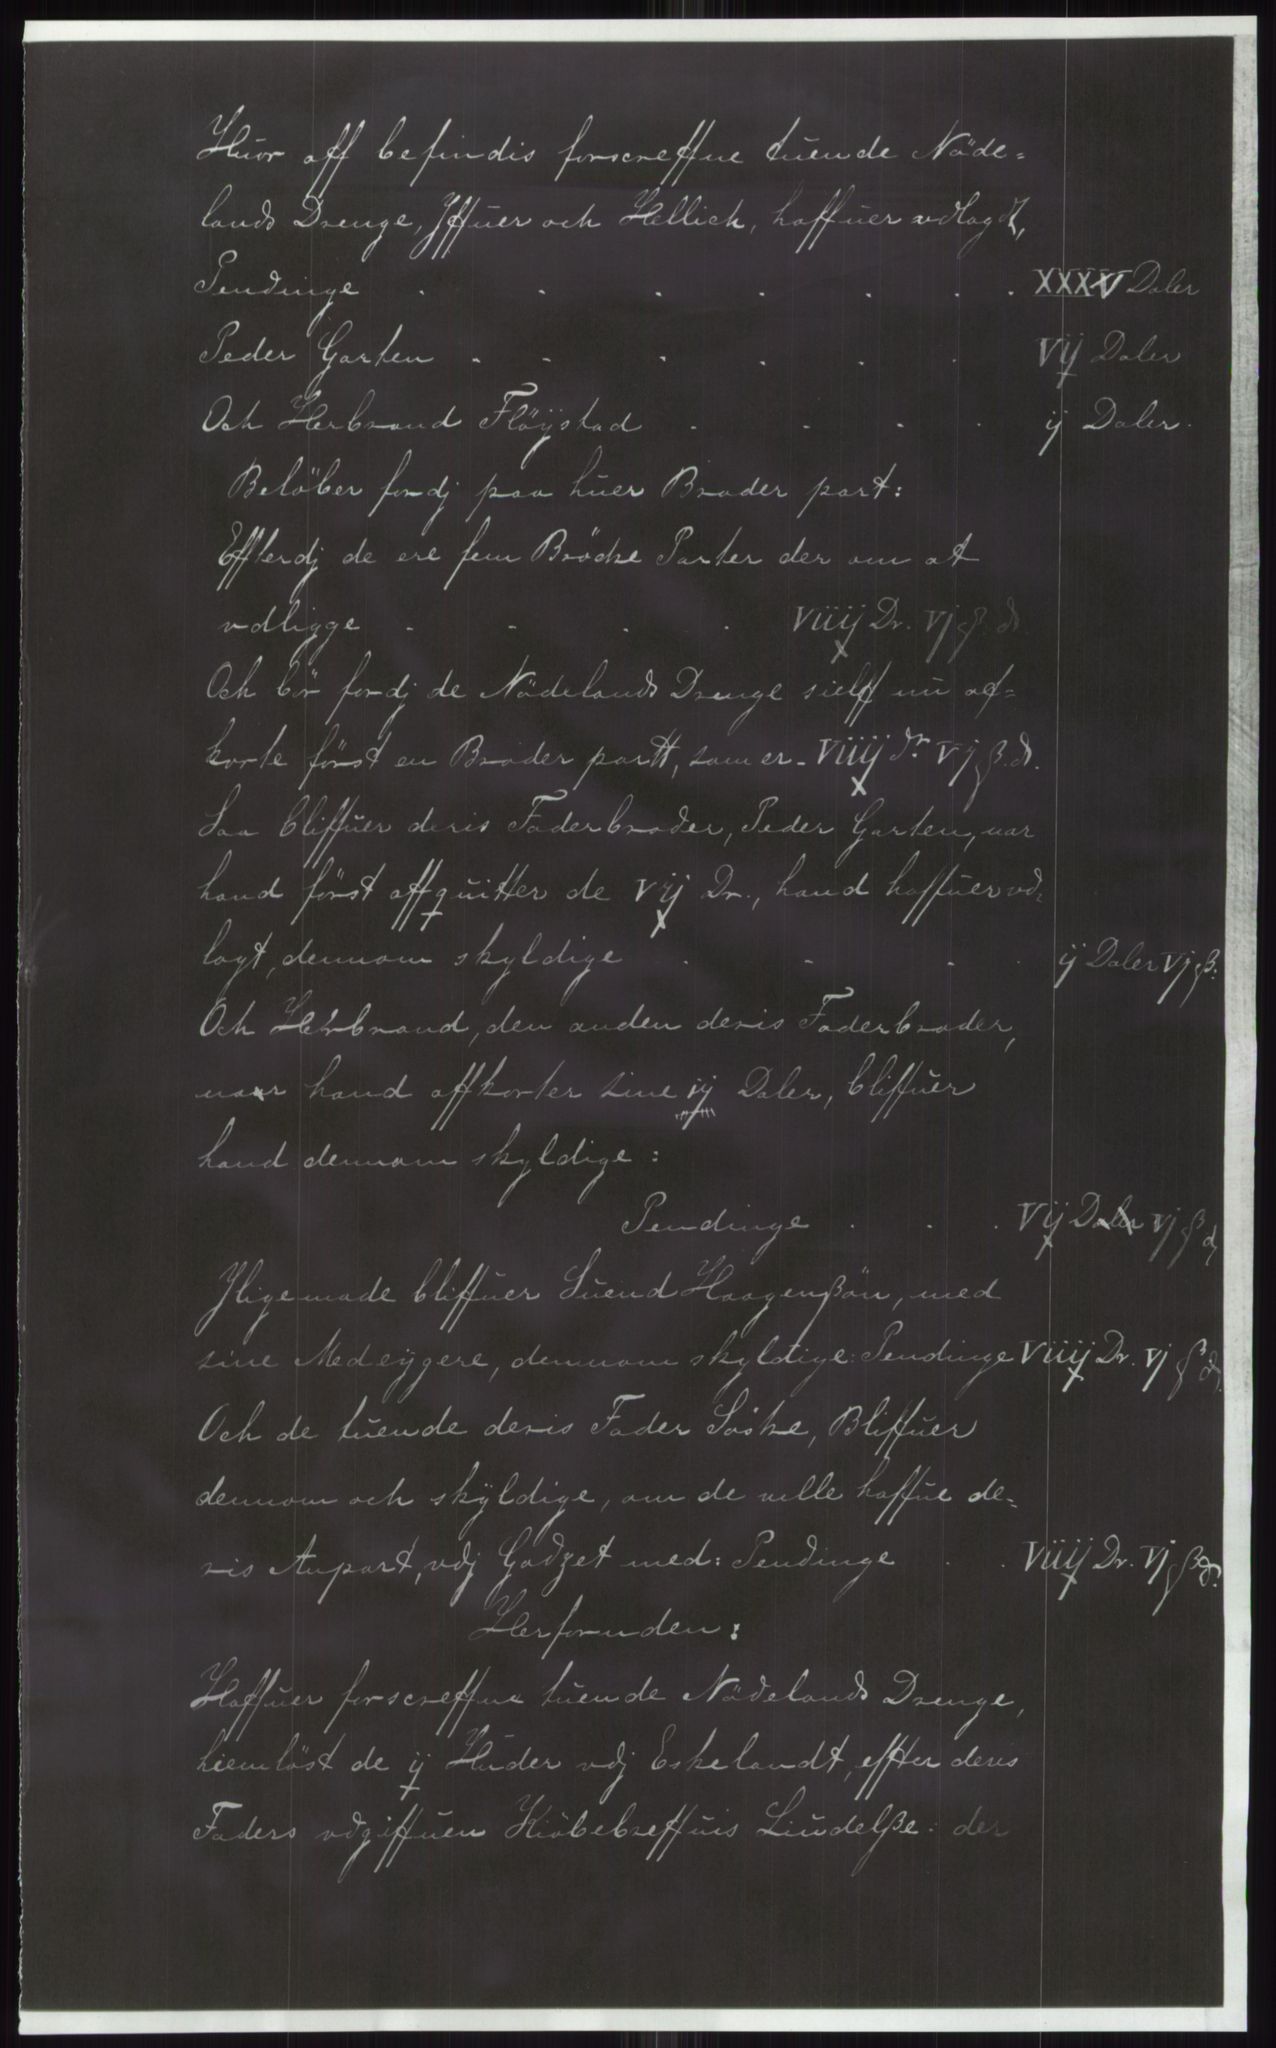 Huor aff befindis forscreffne tuende Nöde=
lands Drenge, Jffuer och Hellich, haffuer vdlagdt,
Pendinge . . . . . . . XXXV Daler
Peder Garten - - . . . . Vij Daler
Och Herbrand Flöystad . . . . ij Daler.
Belöber fordj paa huer Broder part:
Effterdj de ere fem Brödre Parter der om at
vdligge . . . . Viiij Dr. Vj ß. d.
Och bör fordj de Nödelands Drenge sielff nu af=
korte först en Broder partt, som er - Viiij dr Vj ß. d.
Saa bliffuer deris Faderbroder, Peder Garten, nar
hand först affquitter de Vij Dr., hand haffuer vd=
lagt, dennom skyldige . . . . ij Daler Vj ß.
Och Herbrand, den anden deris Faderbroder,
naar hand affkorter sine ij Daler, bliffuer
hand dennom skyldige:
Pendinge . . . Vij Daler Vj ß d
Jligemade bliffuer Suend Haagenßön, med
sine Medeygere, dennom skyldige: Pendinge Viiij Dr. Vj ß d.
Och de tuende deris Fader Söstre, Bliffuer
dennom och skÿldige, om de velle haffue de=
ris Anpart, vdj Godzet med: Pendinge . . Viiij Dr. Vj ß d.
Herforuden:
Haffuer forscreffne tuende Nödelands Drenge,
hiemlöst de ij Huder vdj Eskelandt, effter deris
Faders vdgiffuen Kiöbebreffuis Liudelße: der